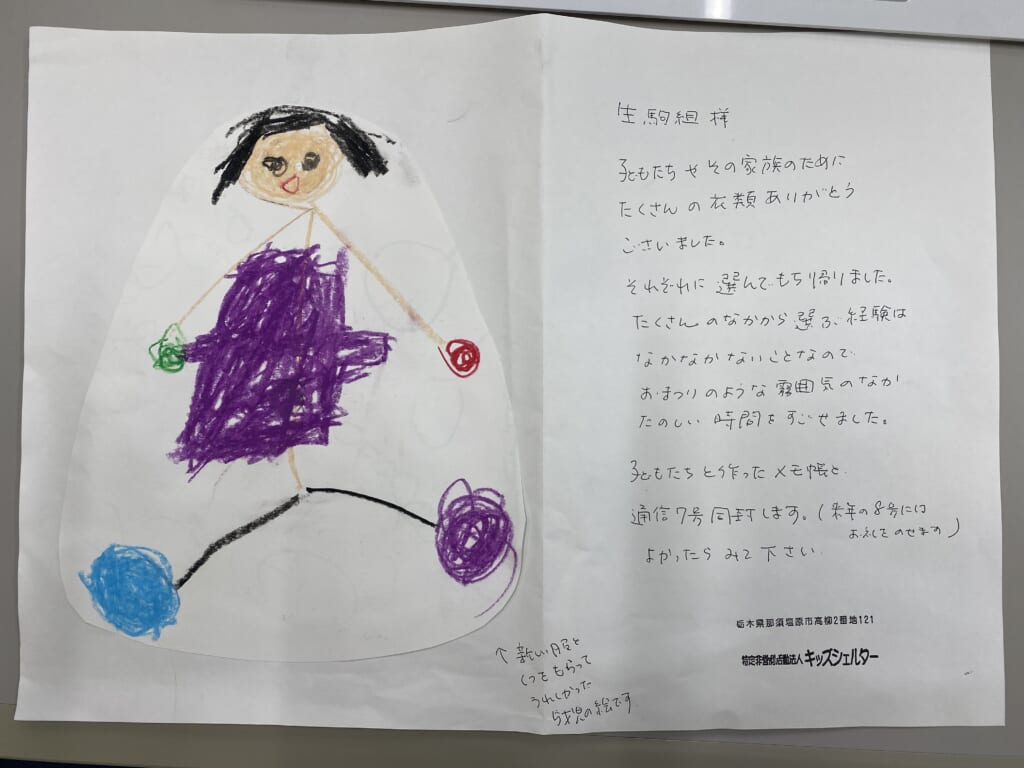 生駒組 様
子どもたちやその家族のために
たくさんの衣類ありがとう
ございました。
それぞれに選んでもち帰りました。
たくさんのなかから選ぶ経験は
なかなかないことなので
おまつりのような雰囲気のなか
たのしい時間をすごせました。
子どもたちと作ったメモ帳と
通信7号同封します。(来年の8号には
お礼をのせます)
よかったらみて下さい
栃木県那須塩原市高柳2番地121
特定非営利活動法人 キッズシェルター
↑新しい服と
くつをもらって
うれしかった
5才児の絵です